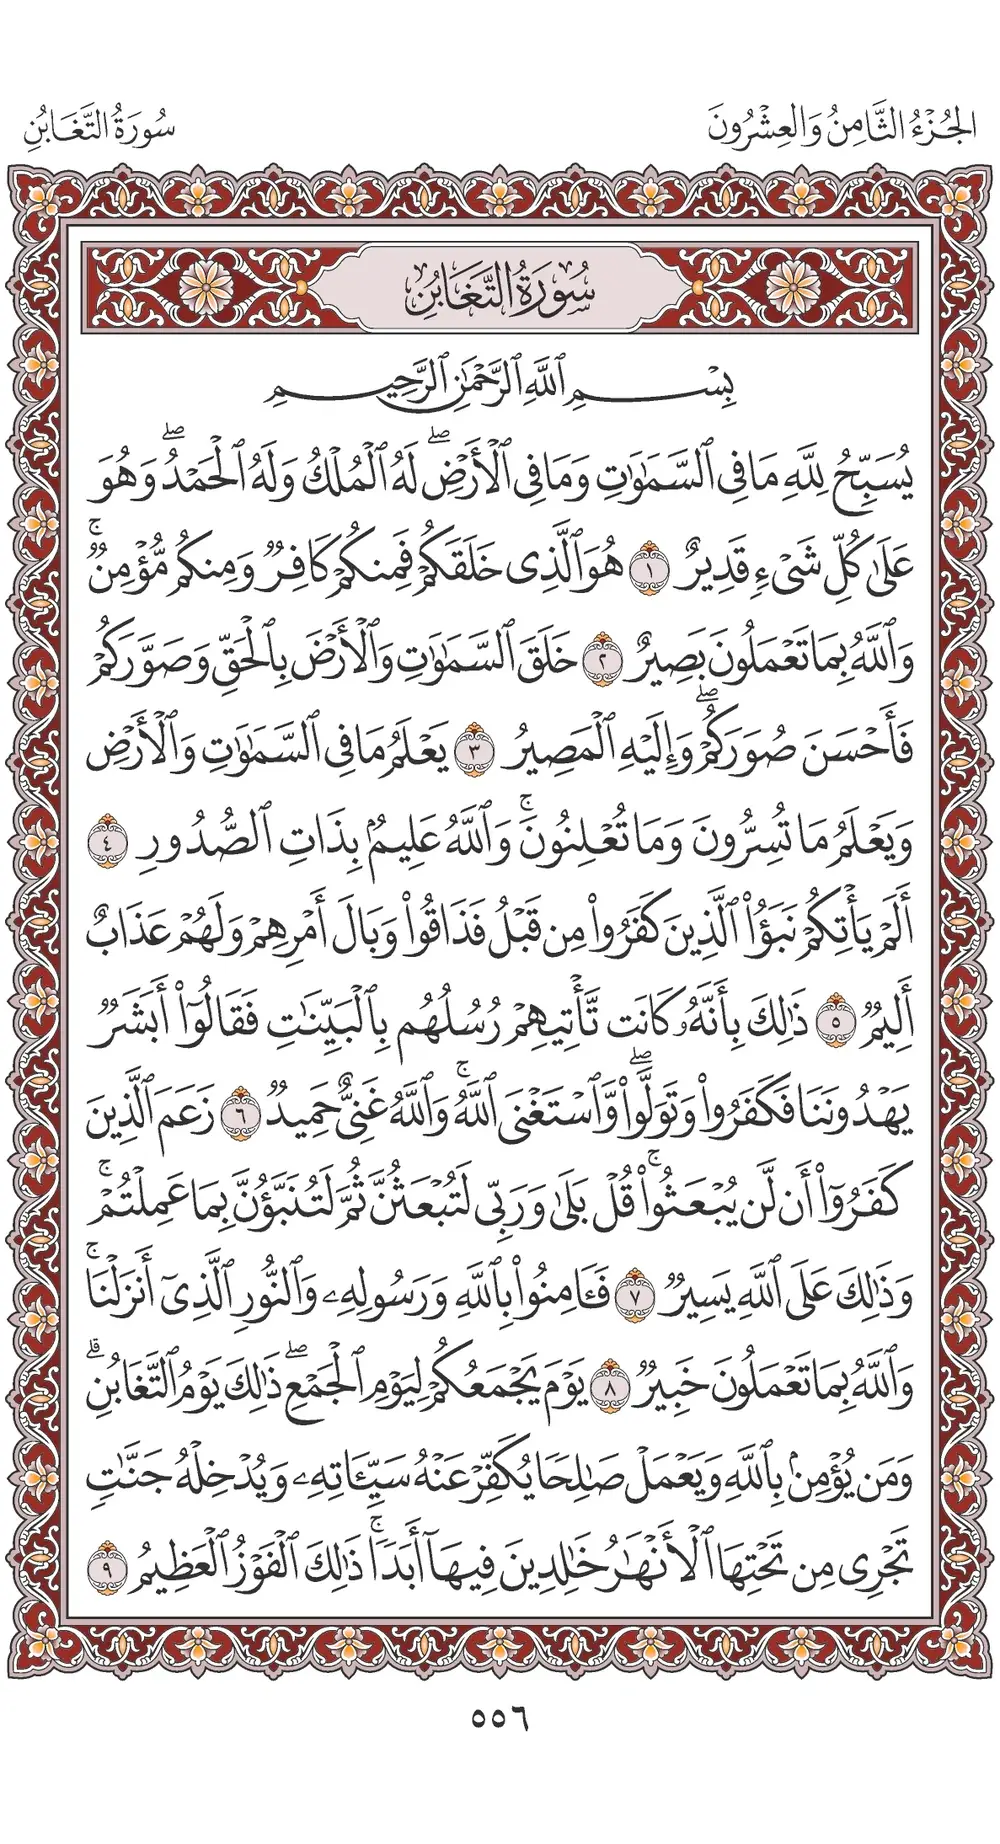 الجُزْءُ الثَّامِنُ وَالعِشْرُونَ
سُورَةُ التَّغَابُنِ
سُورَةُ التَّغَابُنِ
بِسْمِ ٱللَّهِ ٱلرَّحْمَٰنِ ٱلرَّحِيمِ
يُسَبِّحُ لِلَّهِ مَا فِي ٱلسَّمَٰوَٰتِ وَمَا فِي ٱلْأَرْضِۖ لَهُ ٱلْمُلْكُ وَلَهُ ٱلْحَمْدُۖ وَهُوَ
عَلَىٰ كُلِّ شَىْءٍ قَدِيرٌ ١ هُوَ ٱلَّذِى خَلَقَكُمْ فَمِنكُمْ كَافِرٌ وَمِنكُم مُّؤْمِنٌۚ
وَٱللَّهُ بِمَا تَعْمَلُونَ بَصِيرٌ ٢ خَلَقَ ٱلسَّمَٰوَٰتِ وَٱلْأَرْضَ بِٱلْحَقِّ وَصَوَّرَكُمْ
فَأَحْسَنَ صُوَرَكُمْۖ وَإِلَيْهِ ٱلْمَصِيرُ ٣ يَعْلَمُ مَا فِي ٱلسَّمَٰوَٰتِ وَٱلْأَرْضِ
وَيَعْلَمُ مَا تُسِرُّونَ وَمَا تُعْلِنُونَۚ وَٱللَّهُ عَلِيمٌۢ بِذَاتِ ٱلصُّدُورِ ٤
أَلَمْ يَأْتِكُمْ نَبَؤُا۟ ٱلَّذِينَ كَفَرُوا۟ مِن قَبْلُ فَذَاقُوا۟ وَبَالَ أَمْرِهِمْ وَلَهُمْ عَذَابٌ
أَلِيمٌ ٥ ذَٰلِكَ بِأَنَّهُۥ كَانَت تَّأْتِيهِمْ رُسُلُهُم بِٱلْبَيِّنَٰتِ فَقَالُوٓا۟ أَبَشَرٌ
يَهْدُونَنَا فَكَفَرُوا۟ وَتَوَلَّوا۟ۖ وَّٱسْتَغْنَى ٱللَّهُۚ وَٱللَّهُ غَنِىٌّ حَمِيدٌ ٦ زَعَمَ ٱلَّذِينَ
كَفَرُوٓا۟ أَن لَّن يُبْعَثُوا۟ۚ قُلْ بَلَىٰ وَرَبِّى لَتُبْعَثُنَّ ثُمَّ لَتُنَبَّؤُنَّ بِمَا عَمِلْتُمْۚ
وَذَٰلِكَ عَلَى ٱللَّهِ يَسِيرٌ ٧ فَـَٔامِنُوا۟ بِٱللَّهِ وَرَسُولِهِۦ وَٱلنُّورِ ٱلَّذِىٓ أَنزَلْنَاۚ
وَٱللَّهُ بِمَا تَعْمَلُونَ خَبِيرٌ ٨ يَوْمَ يَجْمَعُكُمْ لِيَوْمِ ٱلْجَمْعِۖ ذَٰلِكَ يَوْمُ ٱلتَّغَابُنِۗ
وَمَن يُؤْمِنۢ بِٱللَّهِ وَيَعْمَلْ صَٰلِحًا يُكَفِّرْ عَنْهُ سَيِّـَٔاتِهِۦ وَيُدْخِلْهُ جَنَّٰتٍ
تَجْرِى مِن تَحْتِهَا ٱلْأَنْهَٰرُ خَٰلِدِينَ فِيهَآ أَبَدًاۚ ذَٰلِكَ ٱلْفَوْزُ ٱلْعَظِيمُ ٩
٥٥٦